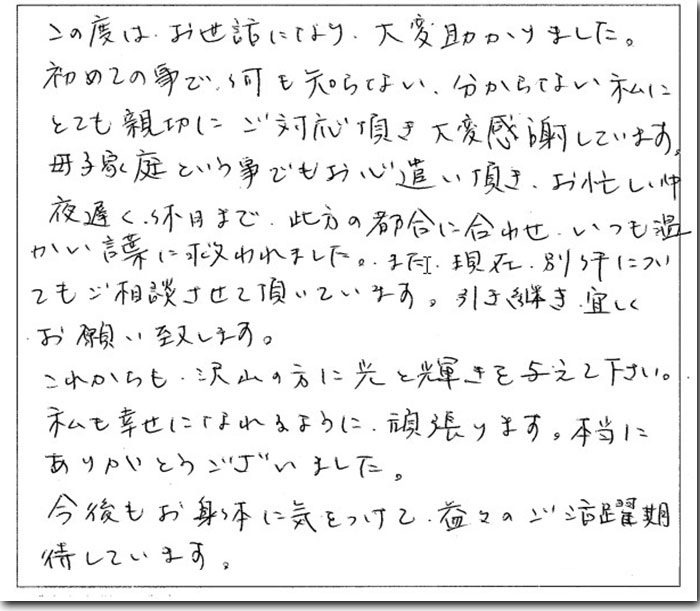 この度は、お世話になり、大変助かりました。
初めての事で、何も知らない、分からない私に
とても親切にご対応頂き大変感謝しています。
母子家庭という事でもお心遣い頂き、お忙しい中
夜遅く、休日まで、此方の都合に合わせ、いつも温
かい言葉に救われました。また、現在、別件につい
てもご相談させて頂いています。引き継き宜しく
お願い致します。
これからも、沢山の方に光と輝きを与えて下さい。
私も幸せになれるように、頑張ります。本当に
ありがとうございました。
今後もお身体に気をつけて、益々のご活躍期
待しています。